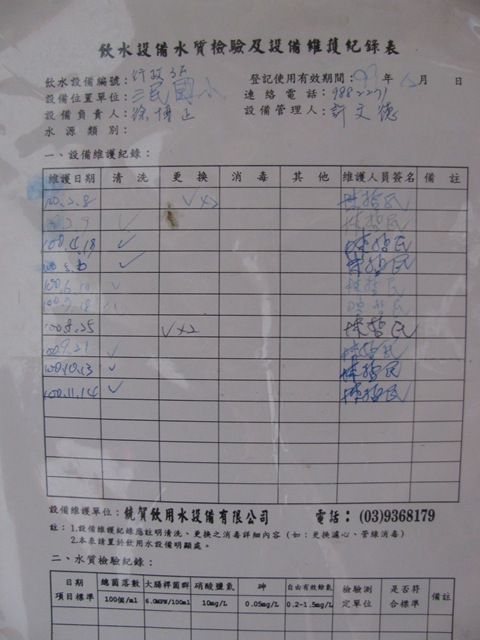 飲水設備水質檢驗及設備維護紀錄表
飲水設備編號：行政3F
登記使用有效期間：99年12月 日
設備位置單位：三民國小
連絡電話：9882271
設備負責人：徐博正
設備管理人：許文德
水源類別：
一、設備維護紀錄：
維護日期 清洗 更換 消毒 其他 維護人員簽名 備註
100.2.8 ✓x2
3.9 ✓
100.4.18 ✓
✓
✓
100.8.25 ✓x2
100.9.21 ✓
100.10.13 ✓
100.11.14 ✓
設備維護單位：競賀飲用水設備有限公司 電話：(03)9368179
註：1.設備維護紀錄應註明清洗、更換之消毒詳細內容（如：更換濾心、管線消毒）
2.本表請置於飲用水設備明顯處。
二、水質檢驗紀錄：
日期 總菌落數 大腸桿菌群 硝酸鹽氮 砷 自由有效餘氯 檢驗測 是否符
項目標準 100個/ml 6.0MPN/100ml 10mg/L 0.05mg/L 0.2-1.5mg/L 定單位 合標準 備註